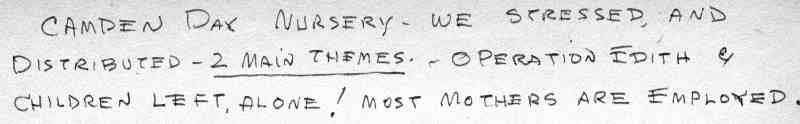 CAMDEN DAY NURSERY - WE STRESSED, AND
DISTRIBUTED - 2 MAIN THEMES. - OPERATION EDITH &
CHILDREN LEFT, ALONE! MOST MOTHERS ARE EMPLOYED.